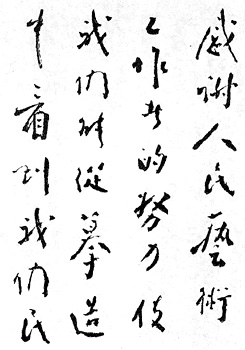 感謝人民藝術
工作者的努力使
我們能從摹造
中看到我們民